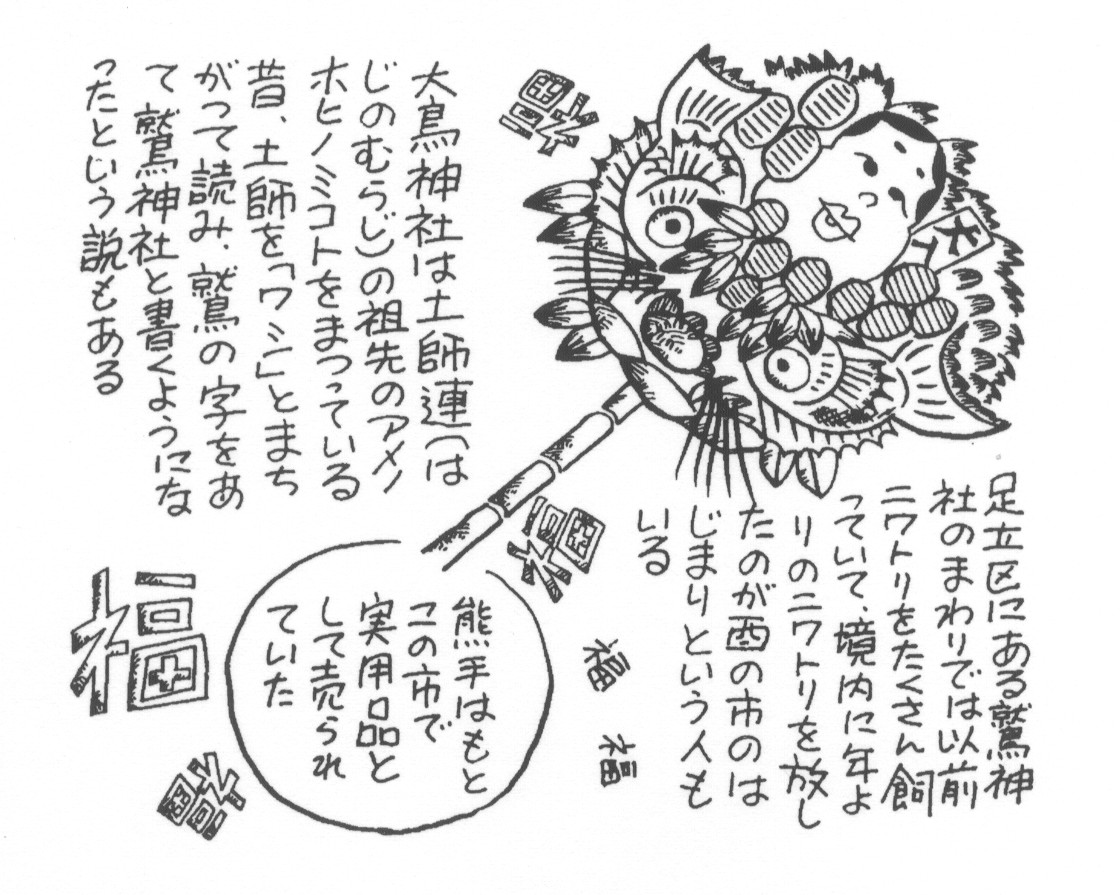 大鳥神社は土師連(は
じのむらじ)の祖先のアメノ
ホヒノミコトをまつっている
昔、土師を「ワシ」とまち
がって読み、鷲の字をあ
て鷲神社と書くようにな
ったという説もある
大
足立区にある鷲神
社のまわりでは以前
ニワトリをたくさん飼
っていて、境内に年よ
りのニワトリを放し
たのが酉の市のは
じまりという人も
いる
熊手はもと
この市で
実用品と
して売られ
ていた
福
福
福
福
福
福